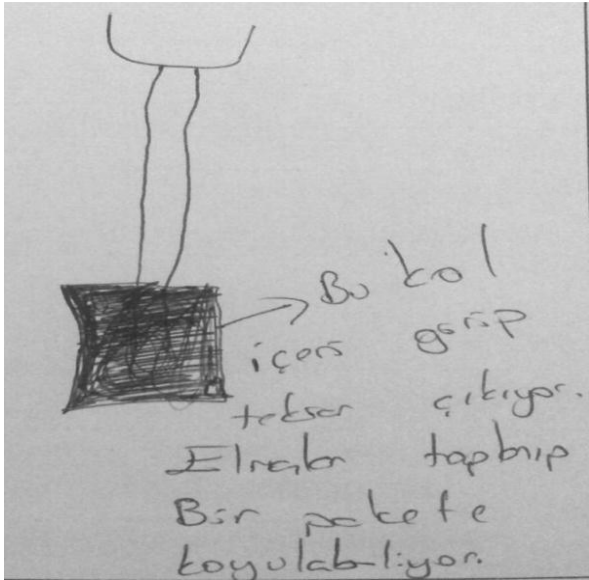 Bu kol
içeri girip
tekrar çıkıyor.
Elmalar toplanıp
Bir pakete
koyulabiliyor.